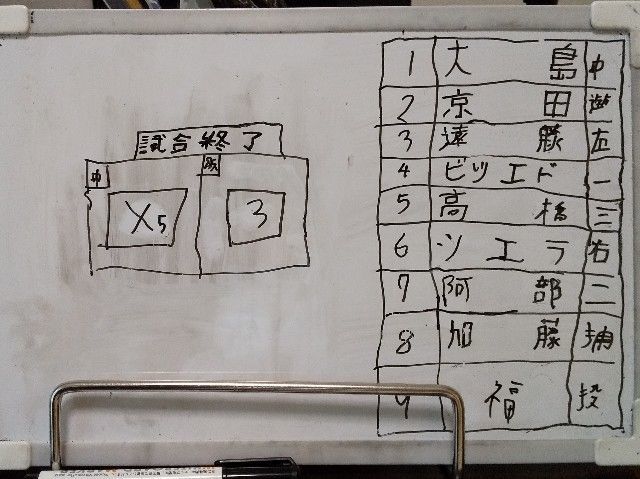 試合終了
中 阪
X5 3
1 大島 中
2 京田 遊
3 遠藤 左
4 ビツエド 一
5 高橋 三
6 ツエラ 右
7 阿部 二
8 加藤 捕
9 福 投